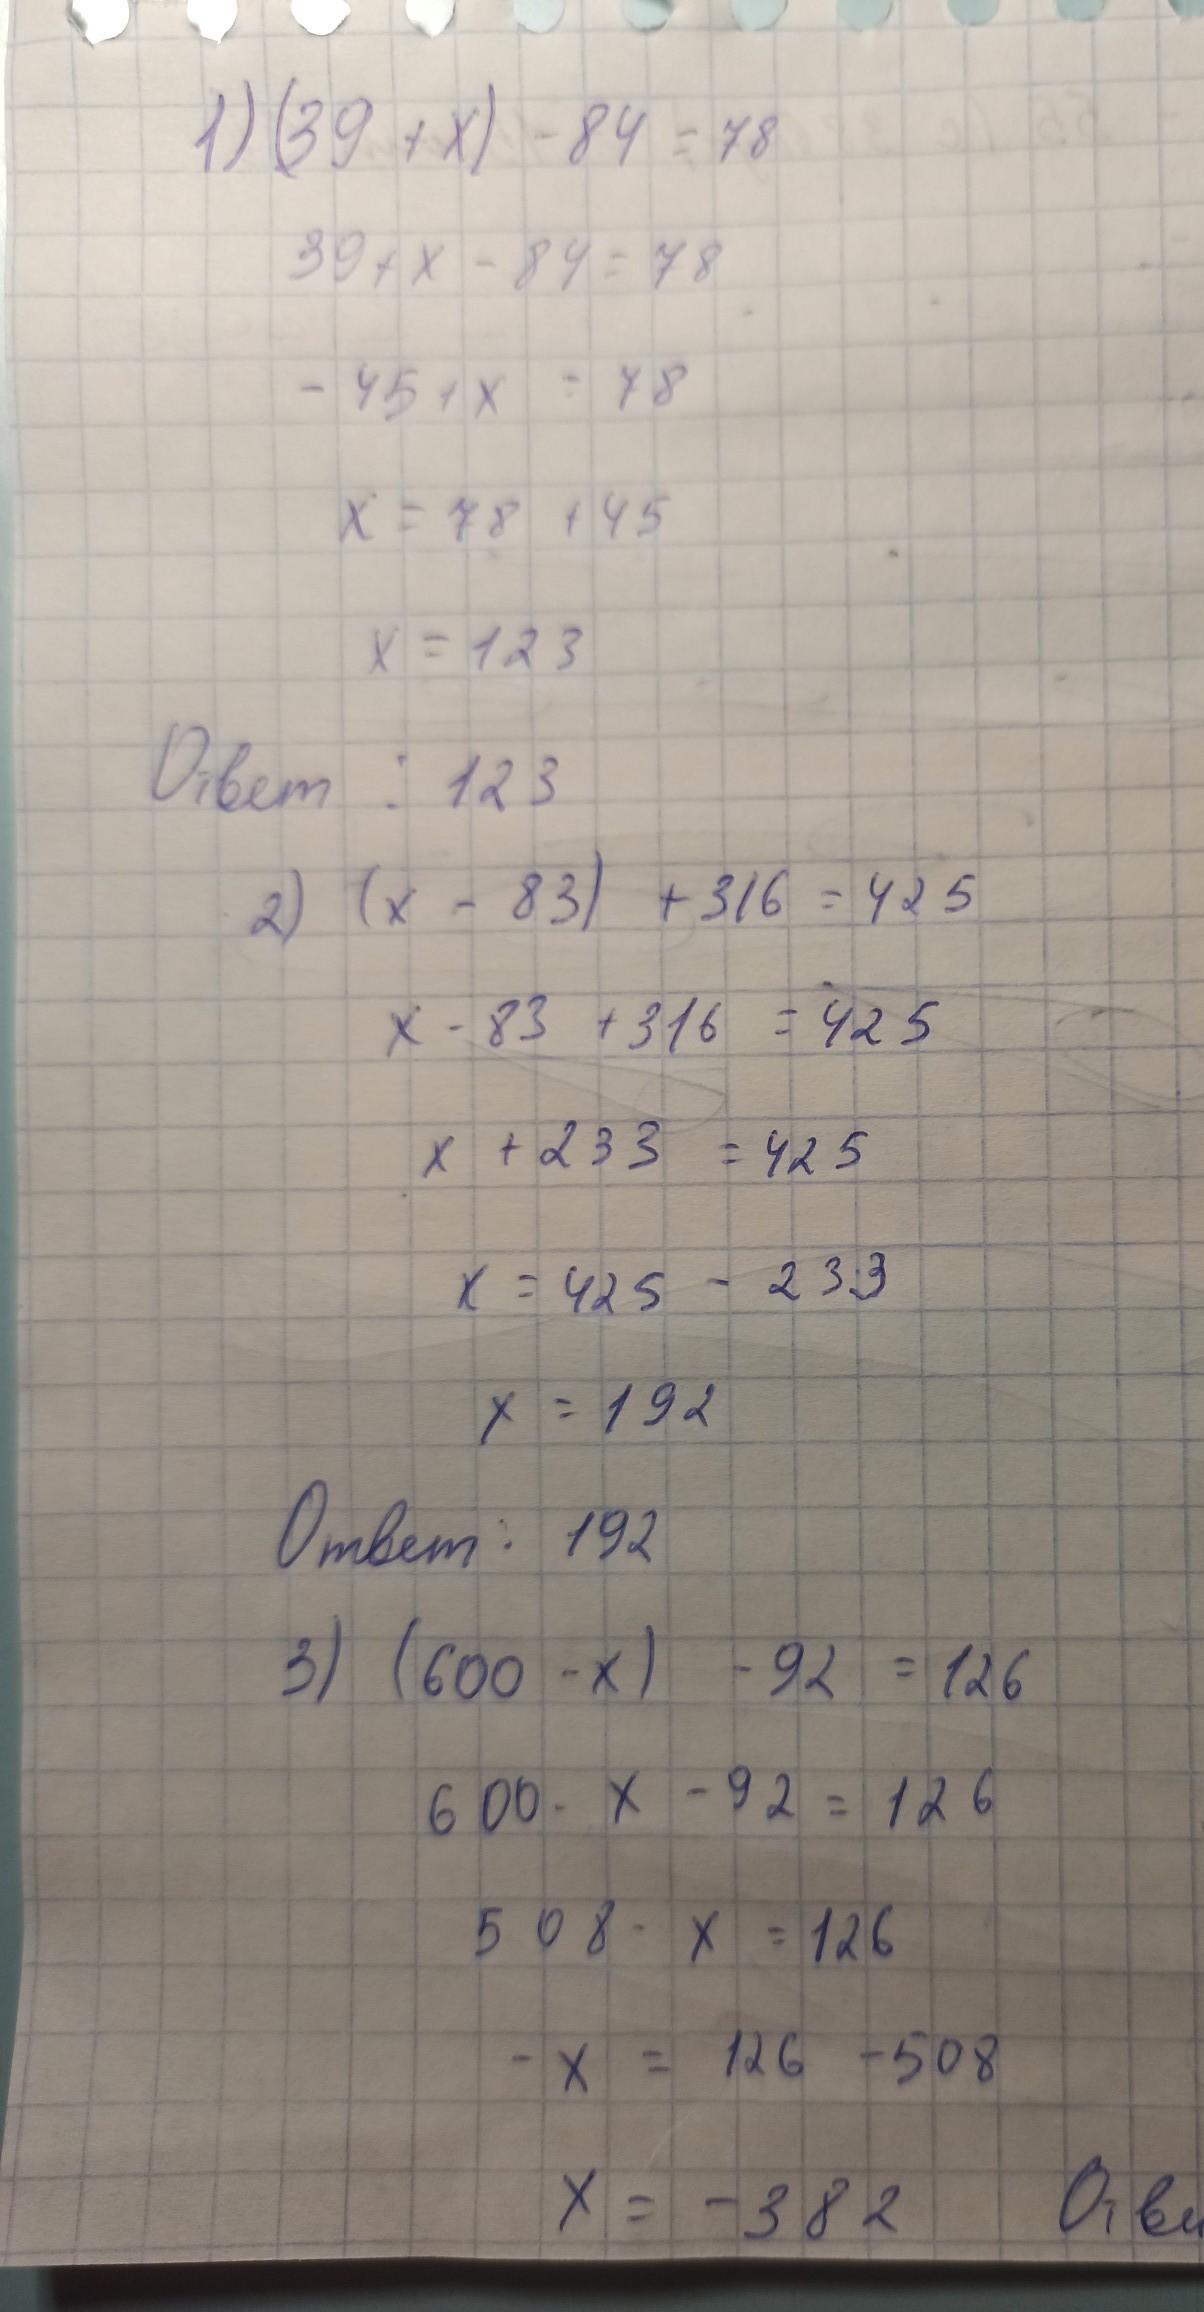 1) (39 + x) - 84 = 78
39 + x - 84 = 78
- 45 + x = 78
x = 78 + 45
x = 123
Ответ : 123
2) (x - 83) + 316 = 425
x - 83 + 316 = 425
x + 233 = 425
x = 425 - 233
x = 192
Ответ : 192
3) (600 - x) - 92 = 126
600 - x - 92 = 126
508 - x = 126
- x = 126 - 508
x = - 382